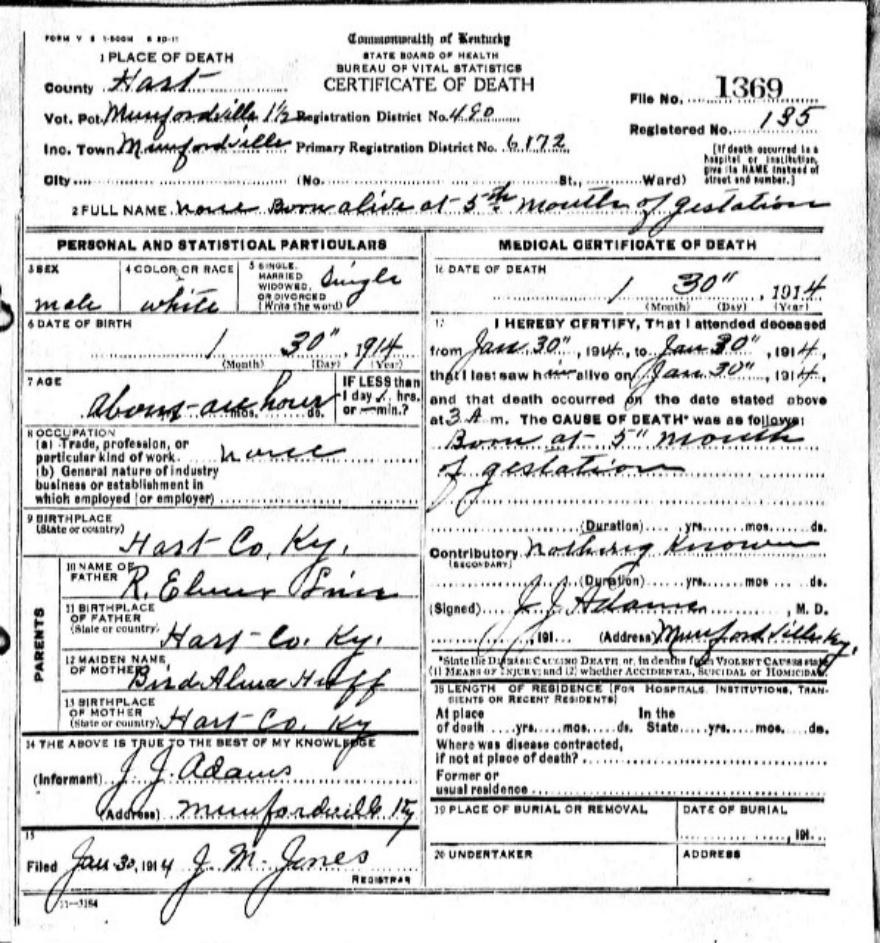 FORM V S 1-500M 8 20-11
Commonwealth of Kentucky
STATE BOARD OF HEALTH
BUREAU OF VITAL STATISTICS
CERTIFICATE OF DEATH
1 PLACE OF DEATH
County Hart
Vot. Pct. Munfordville 1½ Registration District No. 490
Inc. Town Munfordville Primary Registration District No. 6172
City (No. St., Ward)
File No. 1369
Registered No. 135
[If death occurred in a
hospital or institution,
give its NAME instead of
street and number.]
2 FULL NAME none Born alive at 5th month of gestation
PERSONAL AND STATISTICAL PARTICULARS
3 SEX
male
4 COLOR OR RACE
white
5 SINGLE,
MARRIED
WIDOWED,
OR DIVORCED
(Write the word)
Single
6 DATE OF BIRTH
1 30", 1914
(Month) (Day) (Year)
7 AGE
About an hour
mos. ds.
IF LESS than
1 day 1 hrs.
or min.?
8 OCCUPATION
(a) Trade, profession, or
particular kind of work. none
(b) General nature of industry
business or establishment in
which employed (or employer)
9 BIRTHPLACE
(State or country)
Hart Co. Ky.
PARENTS
10 NAME OF
FATHER R. Elmer
11 BIRTHPLACE
OF FATHER
(State or country)
Hart Co. Ky.
12 MAIDEN NAME
OF MOTHER Bird Alma Huff
13 BIRTHPLACE
OF MOTHER
(State or country) Hart Co. Ky
14 THE ABOVE IS TRUE TO THE BEST OF MY KNOWLEDGE
(Informant) J. J. Adams
(Address) Munfordville Ky
15
Filed Jan 30, 1914 J. M. Jones
REGISTRAR
11-3184
MEDICAL CERTIFICATE OF DEATH
16 DATE OF DEATH
1 30", 1914
(Month) (Day) (Year)
17 I HEREBY CERTIFY, That I attended deceased
from Jan 30", 1914, to Jan 30", 1914,
that I last saw him alive on Jan 30", 1914,
and that death occurred on the date stated above
at 3 A m. The CAUSE OF DEATH* was as follows:
Born at 5" month
of gestation
(Duration) yrs. mos. ds.
Contributory Nothing Known
(SECONDARY)
(Duration) yrs. mos ds.
(Signed) J J Adams, M. D.
, 191 (Address) Munfordville Ky.
*State the DISEASE CAUSING DEATH or, in deaths from VIOLENT CAUSES state
(1) MEANS OF INJURY; and (2) whether ACCIDENTAL, SUICIDAL or HOMICIDAL.
18 LENGTH OF RESIDENCE [FOR HOSPITALS, INSTITUTIONS, TRAN-
SIENTS OR RECENT RESIDENTS]
At place In the
of death yrs. mos. ds. State yrs. mos. ds.
Where was disease contracted,
if not at place of death?
Former or
usual residence
19 PLACE OF BURIAL OR REMOVAL
DATE OF BURIAL
, 191
20 UNDERTAKER
ADDRESS